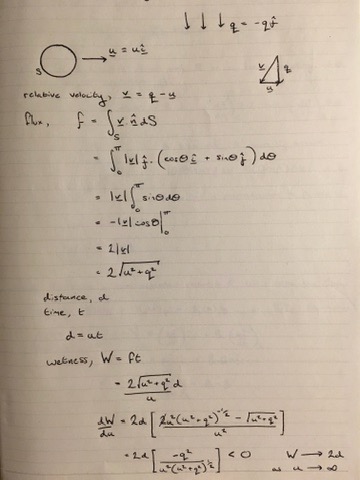 ↓ ↓ ↓ q = -q ĵ
S → u = u î
v q u
relative velocity, v = q - u
flux, f = ∫_S v . n̂ dS
= ∫_0^π |v| ĵ . (cosθ î + sinθ ĵ) dθ
= |v| ∫_0^π sinθ dθ
= -|v| cosθ |_0^π
= 2|v|
= 2√(u² + q²)
distance, d
time, t
d = ut
wetness, W = ft
= 2√(u² + q²) d / u
dW/du = 2d [ (u²(u² + q²)^(-1/2) - √(u² + q²)) / u² ]
= 2d [ -q² / (u²(u² + q²)^(1/2)) ] < 0 W → 2d
as u → ∞